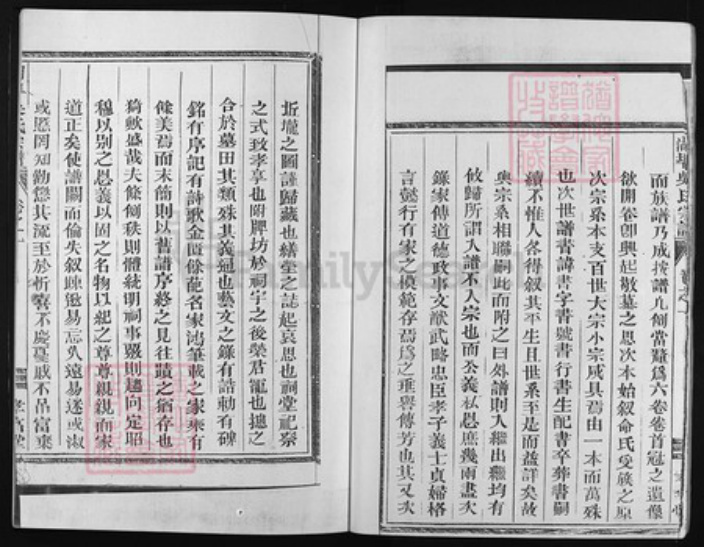 而族譜乃成按譜凡例當釐為六卷卷首冠之遺像
欲開卷卽興起敬慕之思次本始叙命氏受族之原
次宗系本支百世大宗小宗咸具焉由一本而萬殊
也次世譜書諱書字書號書行書生配書卒葬書嗣
續不惟人各得叙其平生且世系至是而益詳矣故
與宗系相聯嗣此而附之曰外譜則入繼出繼均有
攸歸所謂入譜不入宗也而公義私恩庶幾兩盡次
錄家傳道德政事文猷武略忠臣孝子義士貞婦格
言懿行有家之模範存焉為之垂譽傳芳也其又次
圻壠之圖謹歸藏也繕塋之誌起哀思也祠堂祀祭
之式致孝享也附牌坊於祠宇之後榮君寵也摠之
合於墓田其類殊其義通也藝文之錄有誥勅有碑
銘有序記有詩歌金函餘葩名家鴻筆載之家乘有
餘美焉而末簡則以舊譜序終之見往蹟之猶存也
猗歟盛哉夫條例秩則體統明祠事嚴則趨向定昭
穆以別之恩義以固之名物以紀之尊尊親親而家
道正矣使譜闕而倫失叙踈遨易忘久遠易遂或淑
或慝罔知勸懲其流至於析爨不慶憂戚不吊富棄
FamilySearch